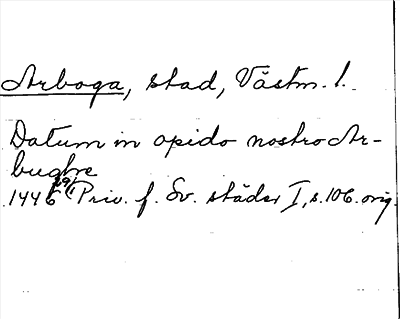 Arboga, stad, Västm. l.
Datum in opido nostro Ar-
bughe
1446 19/1 Priv. f. Sv. städer I, s. 106. orig.